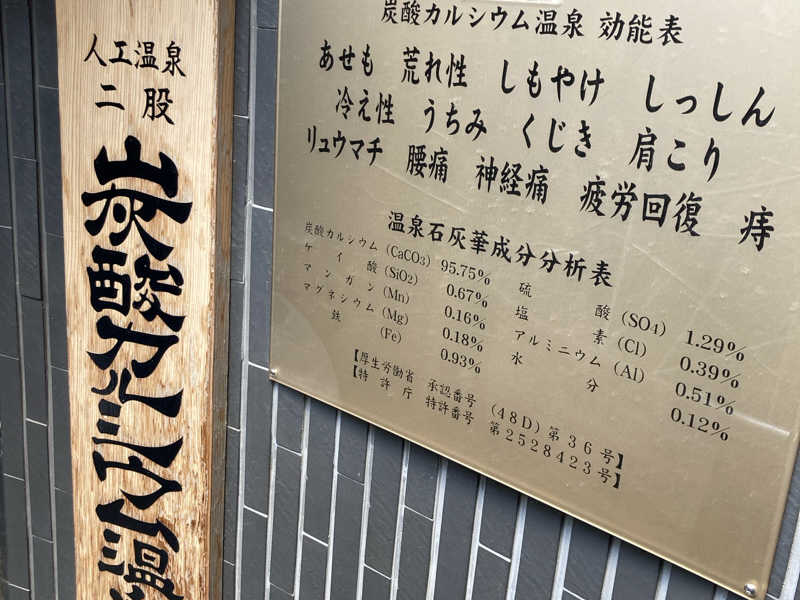 人工温泉
二股
炭酸カルシウム温
炭酸カルシウム温泉 効能表
あせも 荒れ性 しもやけ しっしん
冷え性 うちみ くじき 肩こり
リュウマチ 腰痛 神経痛 疲労回復 痔
温泉石灰華成分分析表
炭酸カルシウム (CaCO3) 95.75%
ケイ酸 (SiO2) 0.67%
マンガン (Mn) 0.16%
マグネシウム (Mg) 0.18%
鉄 (Fe) 0.93%
硫酸 (SO4) 1.29%
塩素 (Cl) 0.39%
アルミニウム (Al) 0.51%
水分 0.12%
【厚生労働省 承認番号 (48D)第36号】
【特許庁 特許番号 第2528423号】